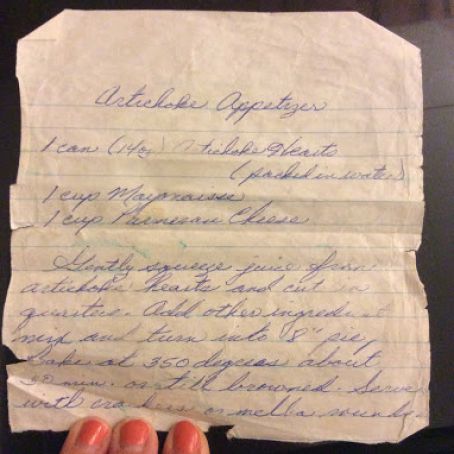 Artichoke Appetizer
1 can (14oz) Artichoke Hearts
(packed in water)
1 cup Mayonaise
1 cup Parmesan Cheese
Gently squeeze juice from
artichoke hearts and cut in
quarters. Add other ingredient
mix and turn into 8" pie,
Bake at 350 degrees about
20 min. or till browned. Serve
with crackers or melba rounds.